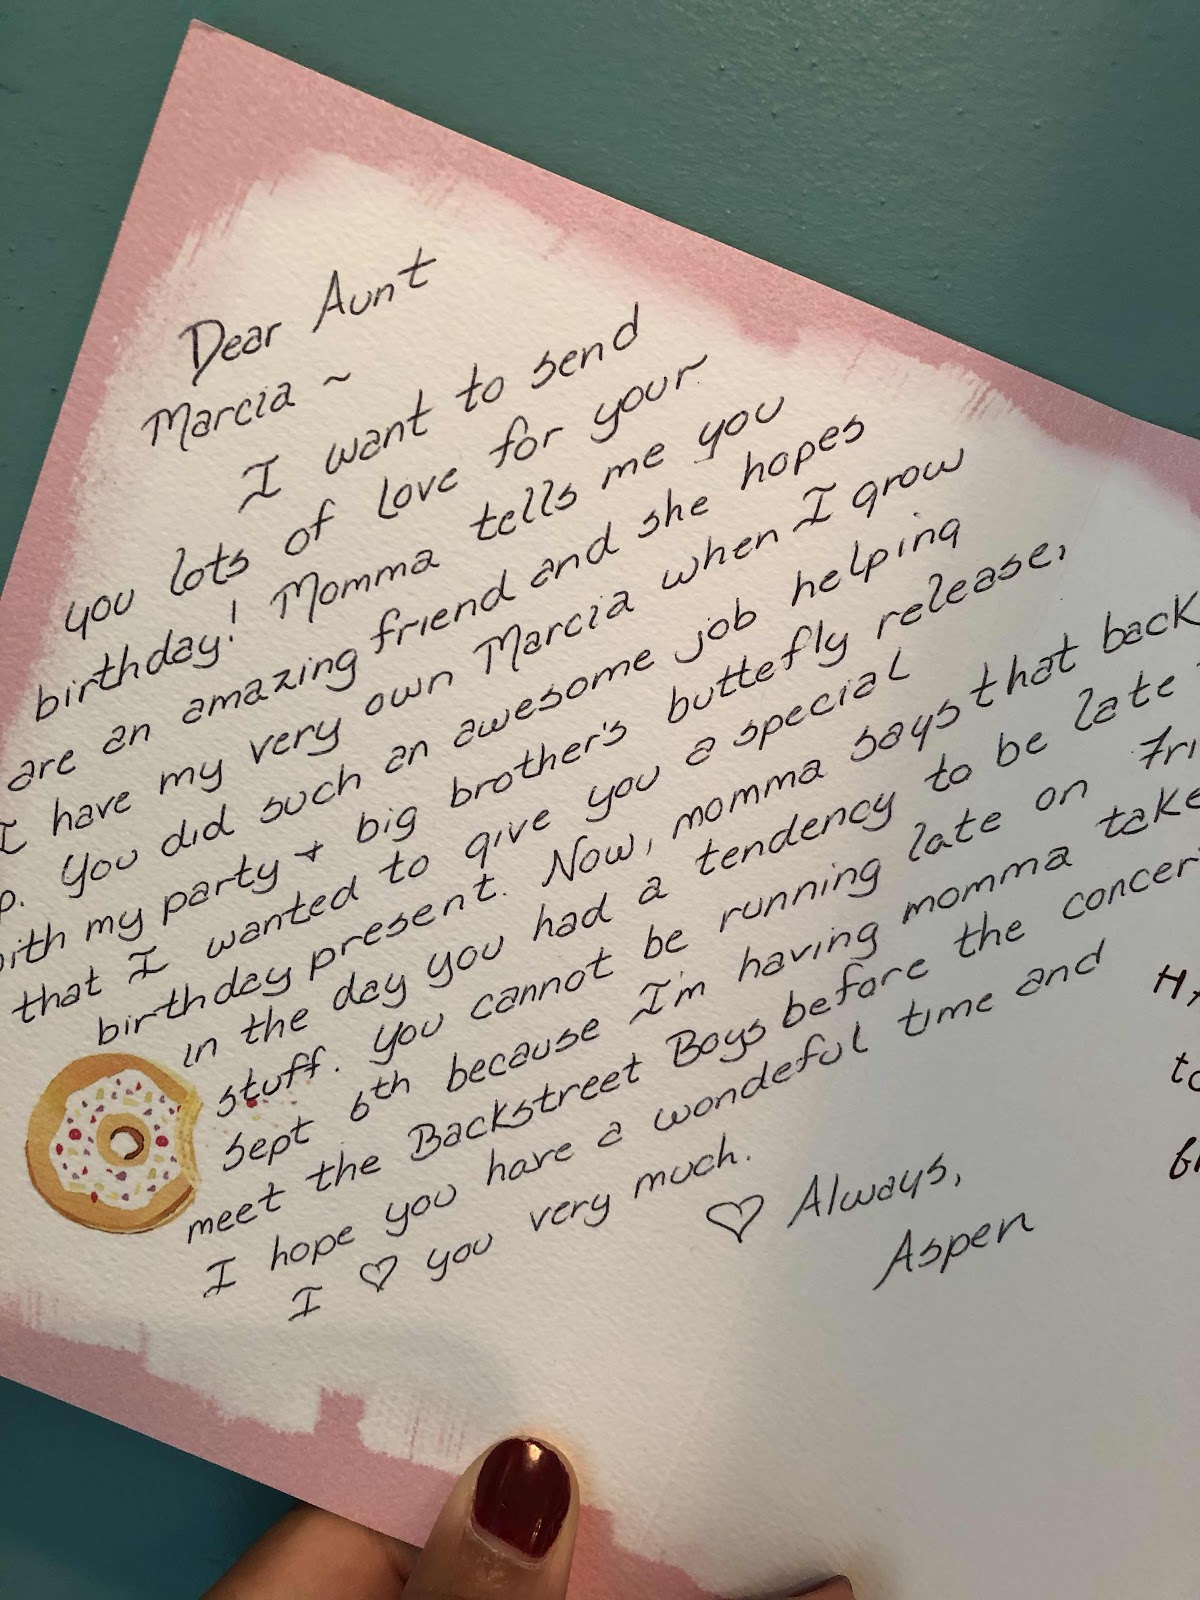 Dear Aunt
Marcia ~
I want to send
you lots of love for your
birthday! Momma tells me you
are an amazing friend and she hopes
I have my very own Marcia when I grow
p. You did such an awesome job helping
with my party + big brother's buttefly release,
that I wanted to give you a special
birthday present. Now, momma says that back
in the day you had a tendency to be late
stuff. You cannot be running late on Fri
Sept 6th because I'm having momma take
meet the Backstreet Boys before the concer
I hope you have a wondeful time and
I ♡ you very much.
♡ Always,
Aspen
to